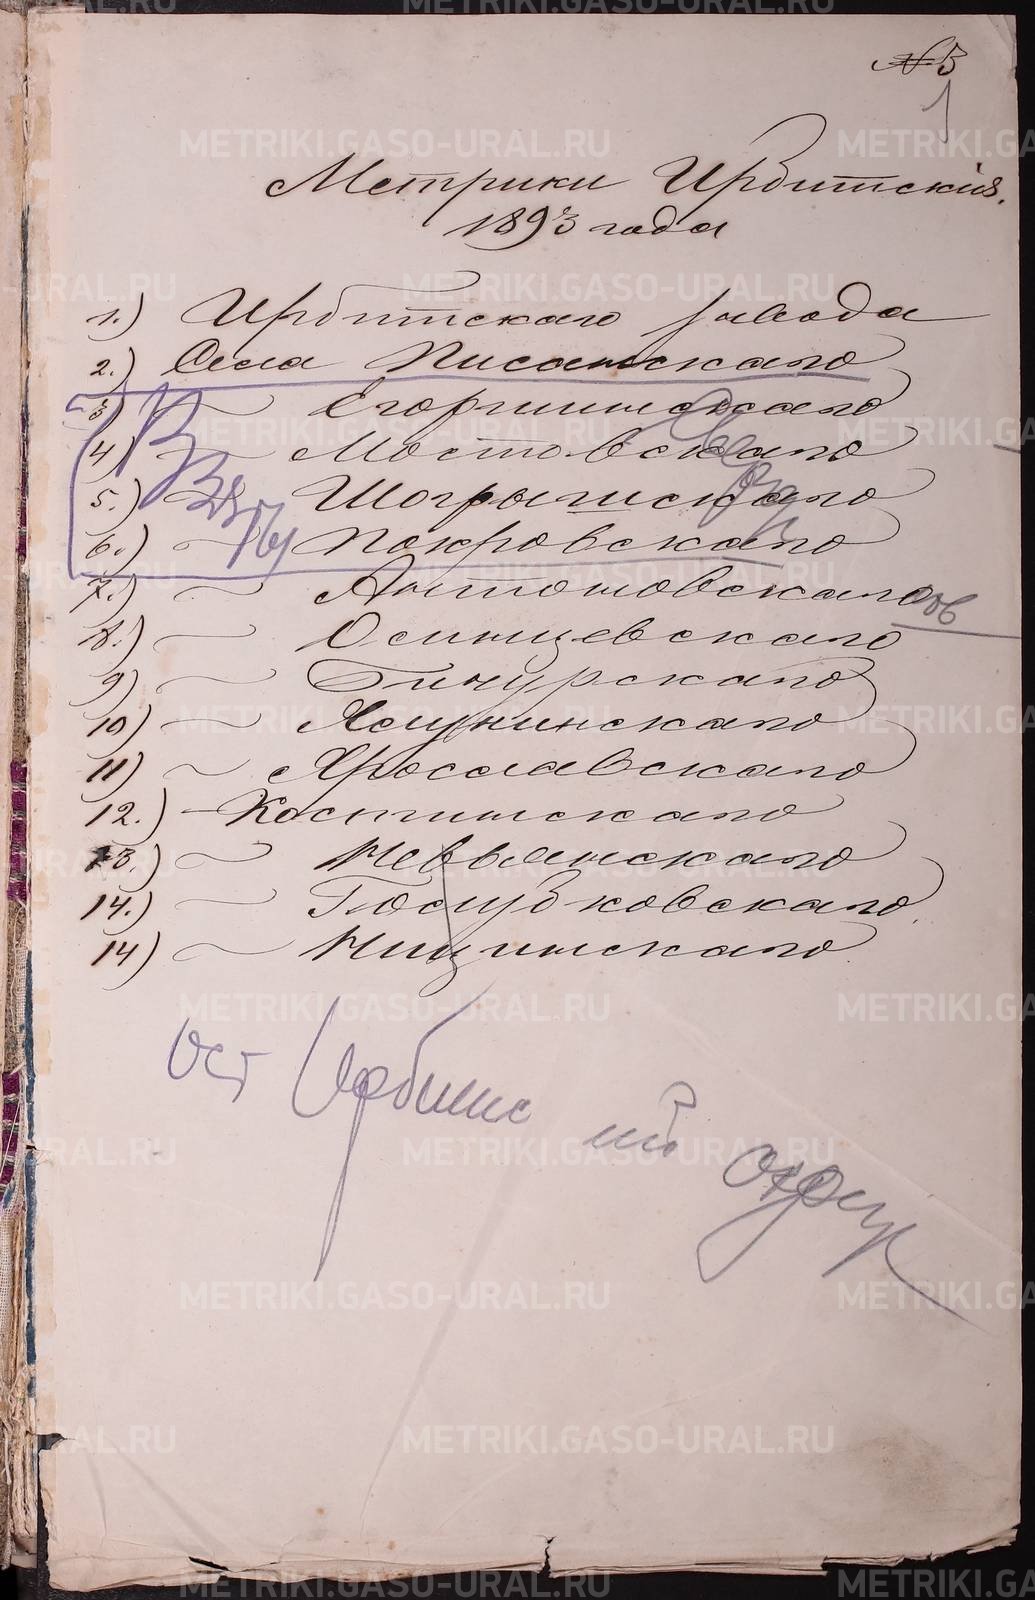 № 3
1
Метрики Ирбитскія.
1893 года
1.) Ирбитскаго завода
2.) Села Писанскаго
3) — Егоршинскаго
4) — Мостовскаго
5.) — Шогрышскаго
6.) — Покровскаго
7.) — Антоновскаго
8.) — Осинцевскаго
9) — Бичурскаго
10) — Ялунинскаго
11) — Ярославскаго
12.) — Костинскаго
13.) — Невьянскаго
14.) — Голубковскаго
14) — Ницинскаго
Ост Ирбитс
округ
METRIKI.GASO-URAL.RU